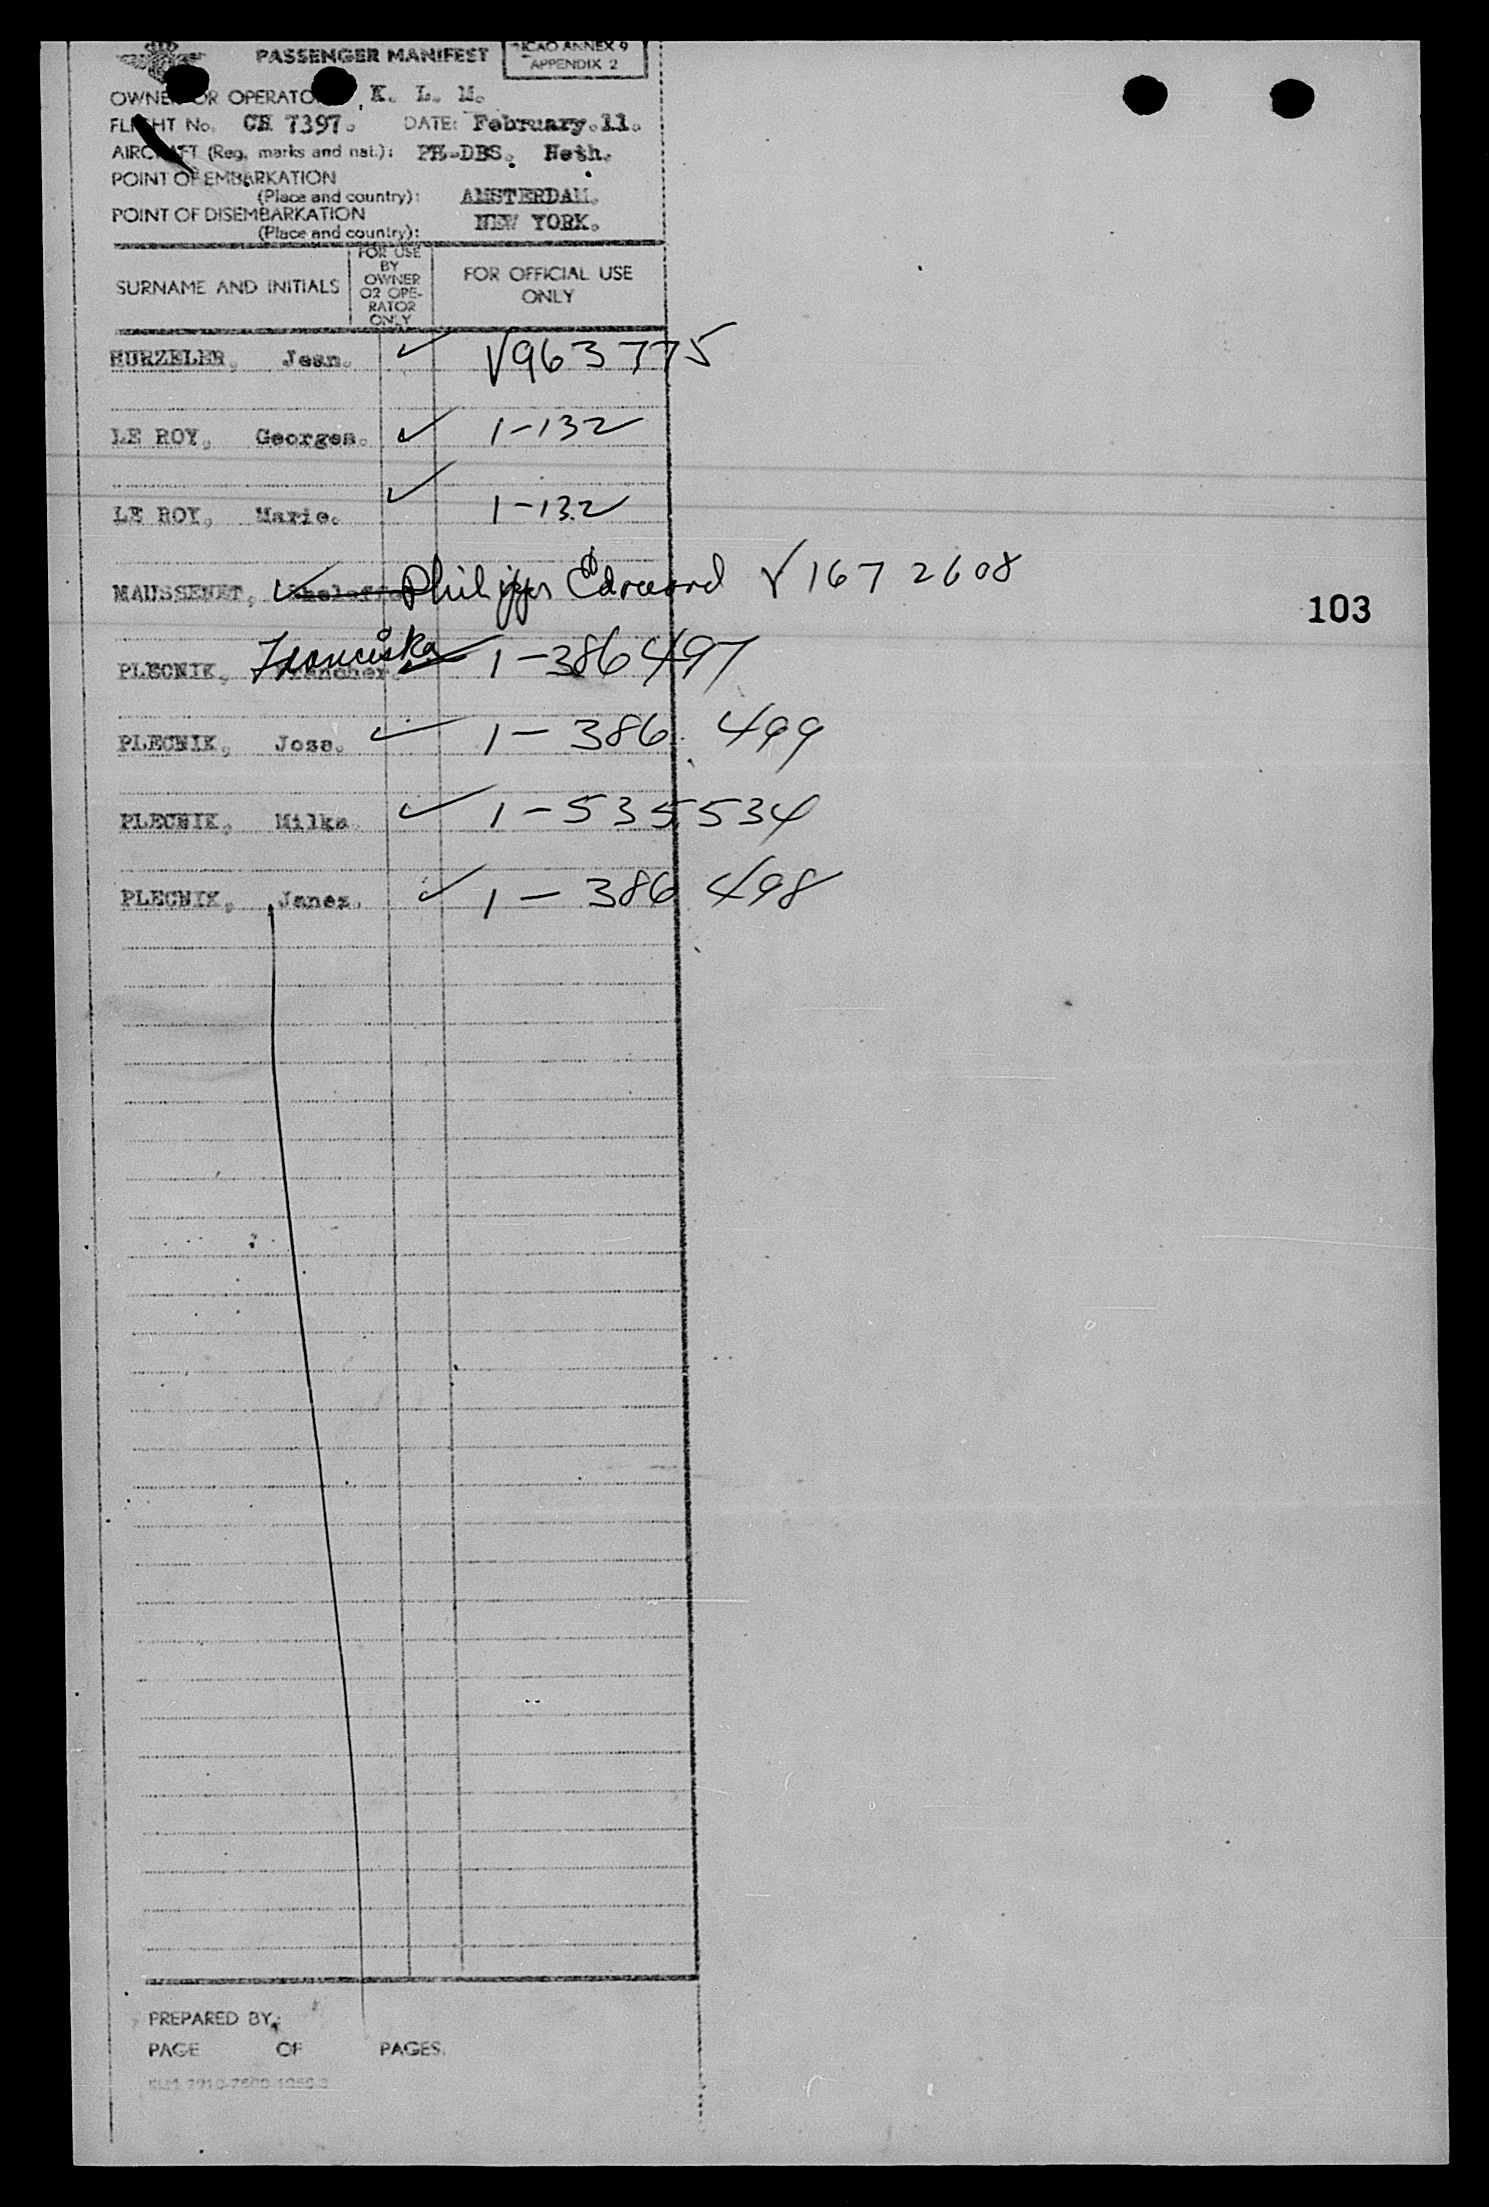 PASSENGER MANIFEST
ICAO ANNEX 9
APPENDIX 2
OWNER OR OPERATOR K. L. M.
FLIGHT No. CH 7397. DATE: February.11.
AIRCRAFT (Reg. marks and nat.): PH-DBS. Neth.
POINT OF EMBARKATION
(Place and country): AMSTERDAM.
POINT OF DISEMBARKATION
(Place and country): NEW YORK.
SURNAME AND INITIALS
FOR USE
BY
OWNER
OR OPE-
RATOR
ONLY
FOR OFFICIAL USE
ONLY
HURZELER, Jean. ✓ V963775
LE ROY, Georges. ✓ 1-132
LE ROY, Marie. ✓ 1-132
MAUSSENET, ✓ Philippe Edouard V1672608
103
PLECNIK, Franciska 1-386497
PLECNIK, Jose. ✓ 1-386 499
PLECNIK, Milka ✓ 1-535534
PLECNIK, Janez. ✓ 1-386 498
PREPARED BY:
PAGE OF PAGES.